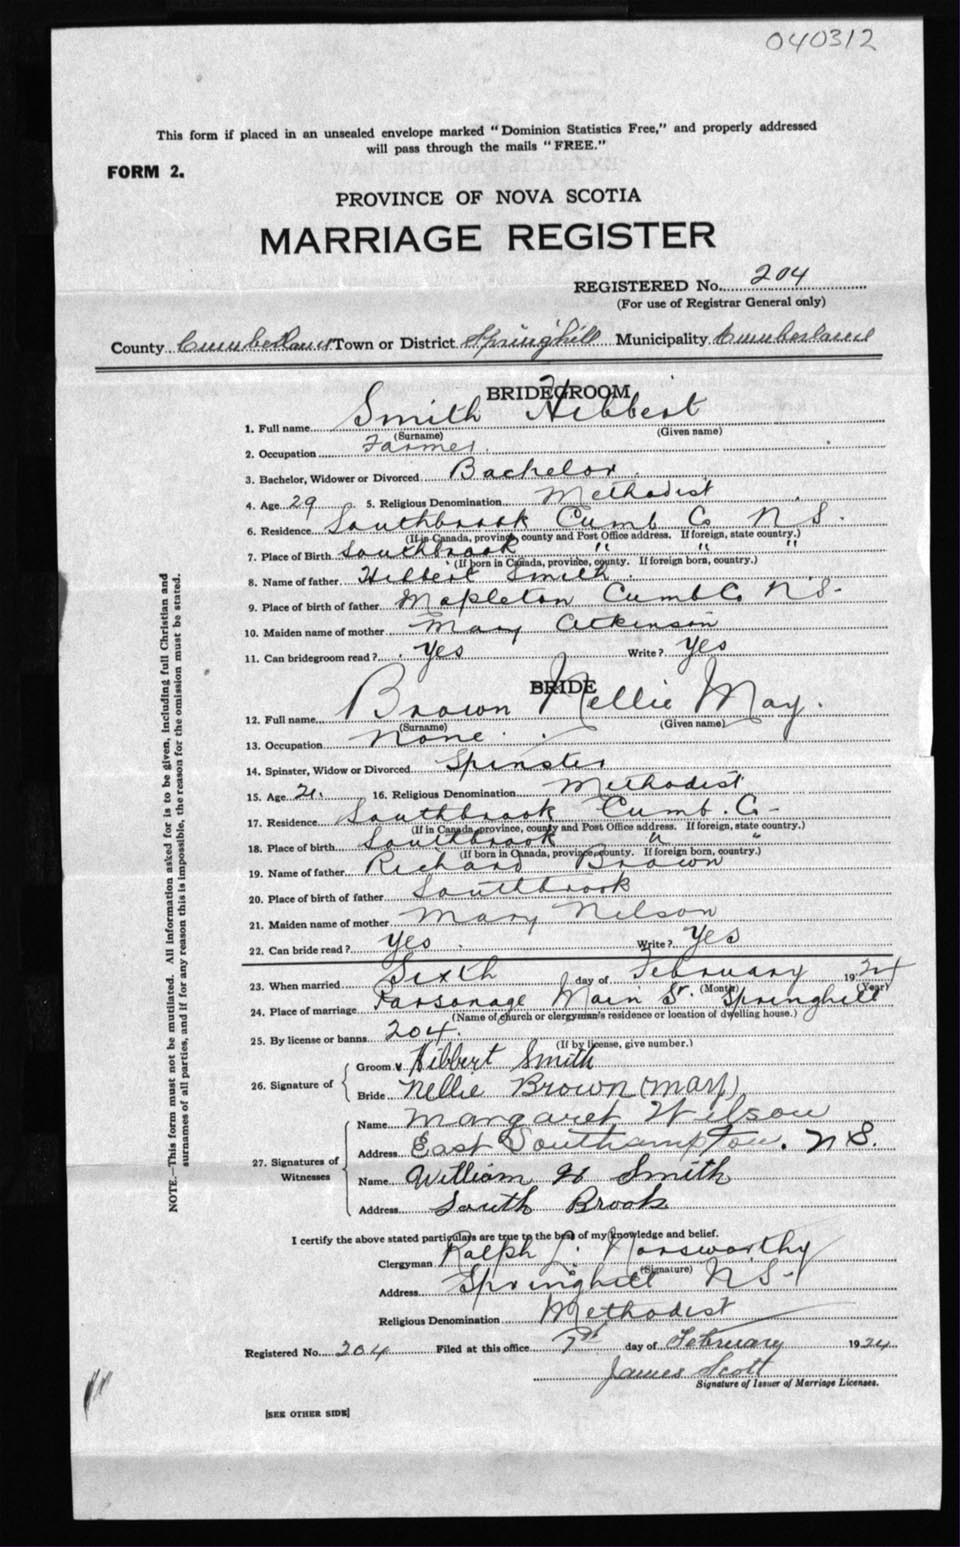 040312
This form if placed in an unsealed envelope marked "Dominion Statistics Free," and properly addressed
will pass through the mails "FREE."
FORM 2.
PROVINCE OF NOVA SCOTIA
MARRIAGE REGISTER
REGISTERED No. 204
(For use of Registrar General only)
County Cumberland Town or District Springhill Municipality Cumberland
BRIDEGROOM
1. Full name Smith Hibbert
(Surname) (Given name)
2. Occupation Farmer
3. Bachelor, Widower or Divorced Bachelor
4. Age 29 5. Religious Denomination Methodist
6. Residence Southbrook Cumb Co N S.
(If in Canada, province, county and Post Office address. If foreign, state country.)
7. Place of Birth Southbrook " " "
(If born in Canada, province, county. If foreign born, country.)
8. Name of father Hibbert Smith
9. Place of birth of father Mapleton Cumb Co N S-
10. Maiden name of mother Mary Atkinson
11. Can bridegroom read? Yes Write? Yes
BRIDE
12. Full name Brown Nellie May.
(Surname) (Given name)
13. Occupation None
14. Spinster, Widow or Divorced Spinster
15. Age 21. 16. Religious Denomination Methodist
17. Residence Southbrook Cumb. Co-
(If in Canada, province, county and Post Office address. If foreign, state country.)
18. Place of birth Southbrook " "
(If born in Canada, province, county. If foreign born, country.)
19. Name of father Richard Brown
20. Place of birth of father Southbrook
21. Maiden name of mother Mary Nelson
22. Can bride read? Yes Write? Yes
23. When married Sixth day of February 1924
(Month) (Year)
24. Place of marriage Parsonage Main St. Springhill
(Name of church or clergyman's residence or location of dwelling house.)
25. By license or banns 204.
(If by license, give number.)
26. Signature of
Groom Hibbert Smith
Bride Nellie Brown (May)
27. Signatures of Witnesses
Name Margaret Wilson
Address East Southampton. N S.
Name William H Smith
Address South Brook
I certify the above stated particulars are true to the best of my knowledge and belief.
Clergyman Ralph
(Signature)
Address Springhill N S-
Religious Denomination Methodist
Registered No. 204 Filed at this office 7th day of February 1924
James Scott
Signature of Issuer of Marriage Licenses.
[SEE OTHER SIDE]
NOTE.—This form must not be mutilated. All information asked for is to be given, including full Christian and
surnames of all parties, and if for any reason this is impossible, the reason for the omission must be stated.